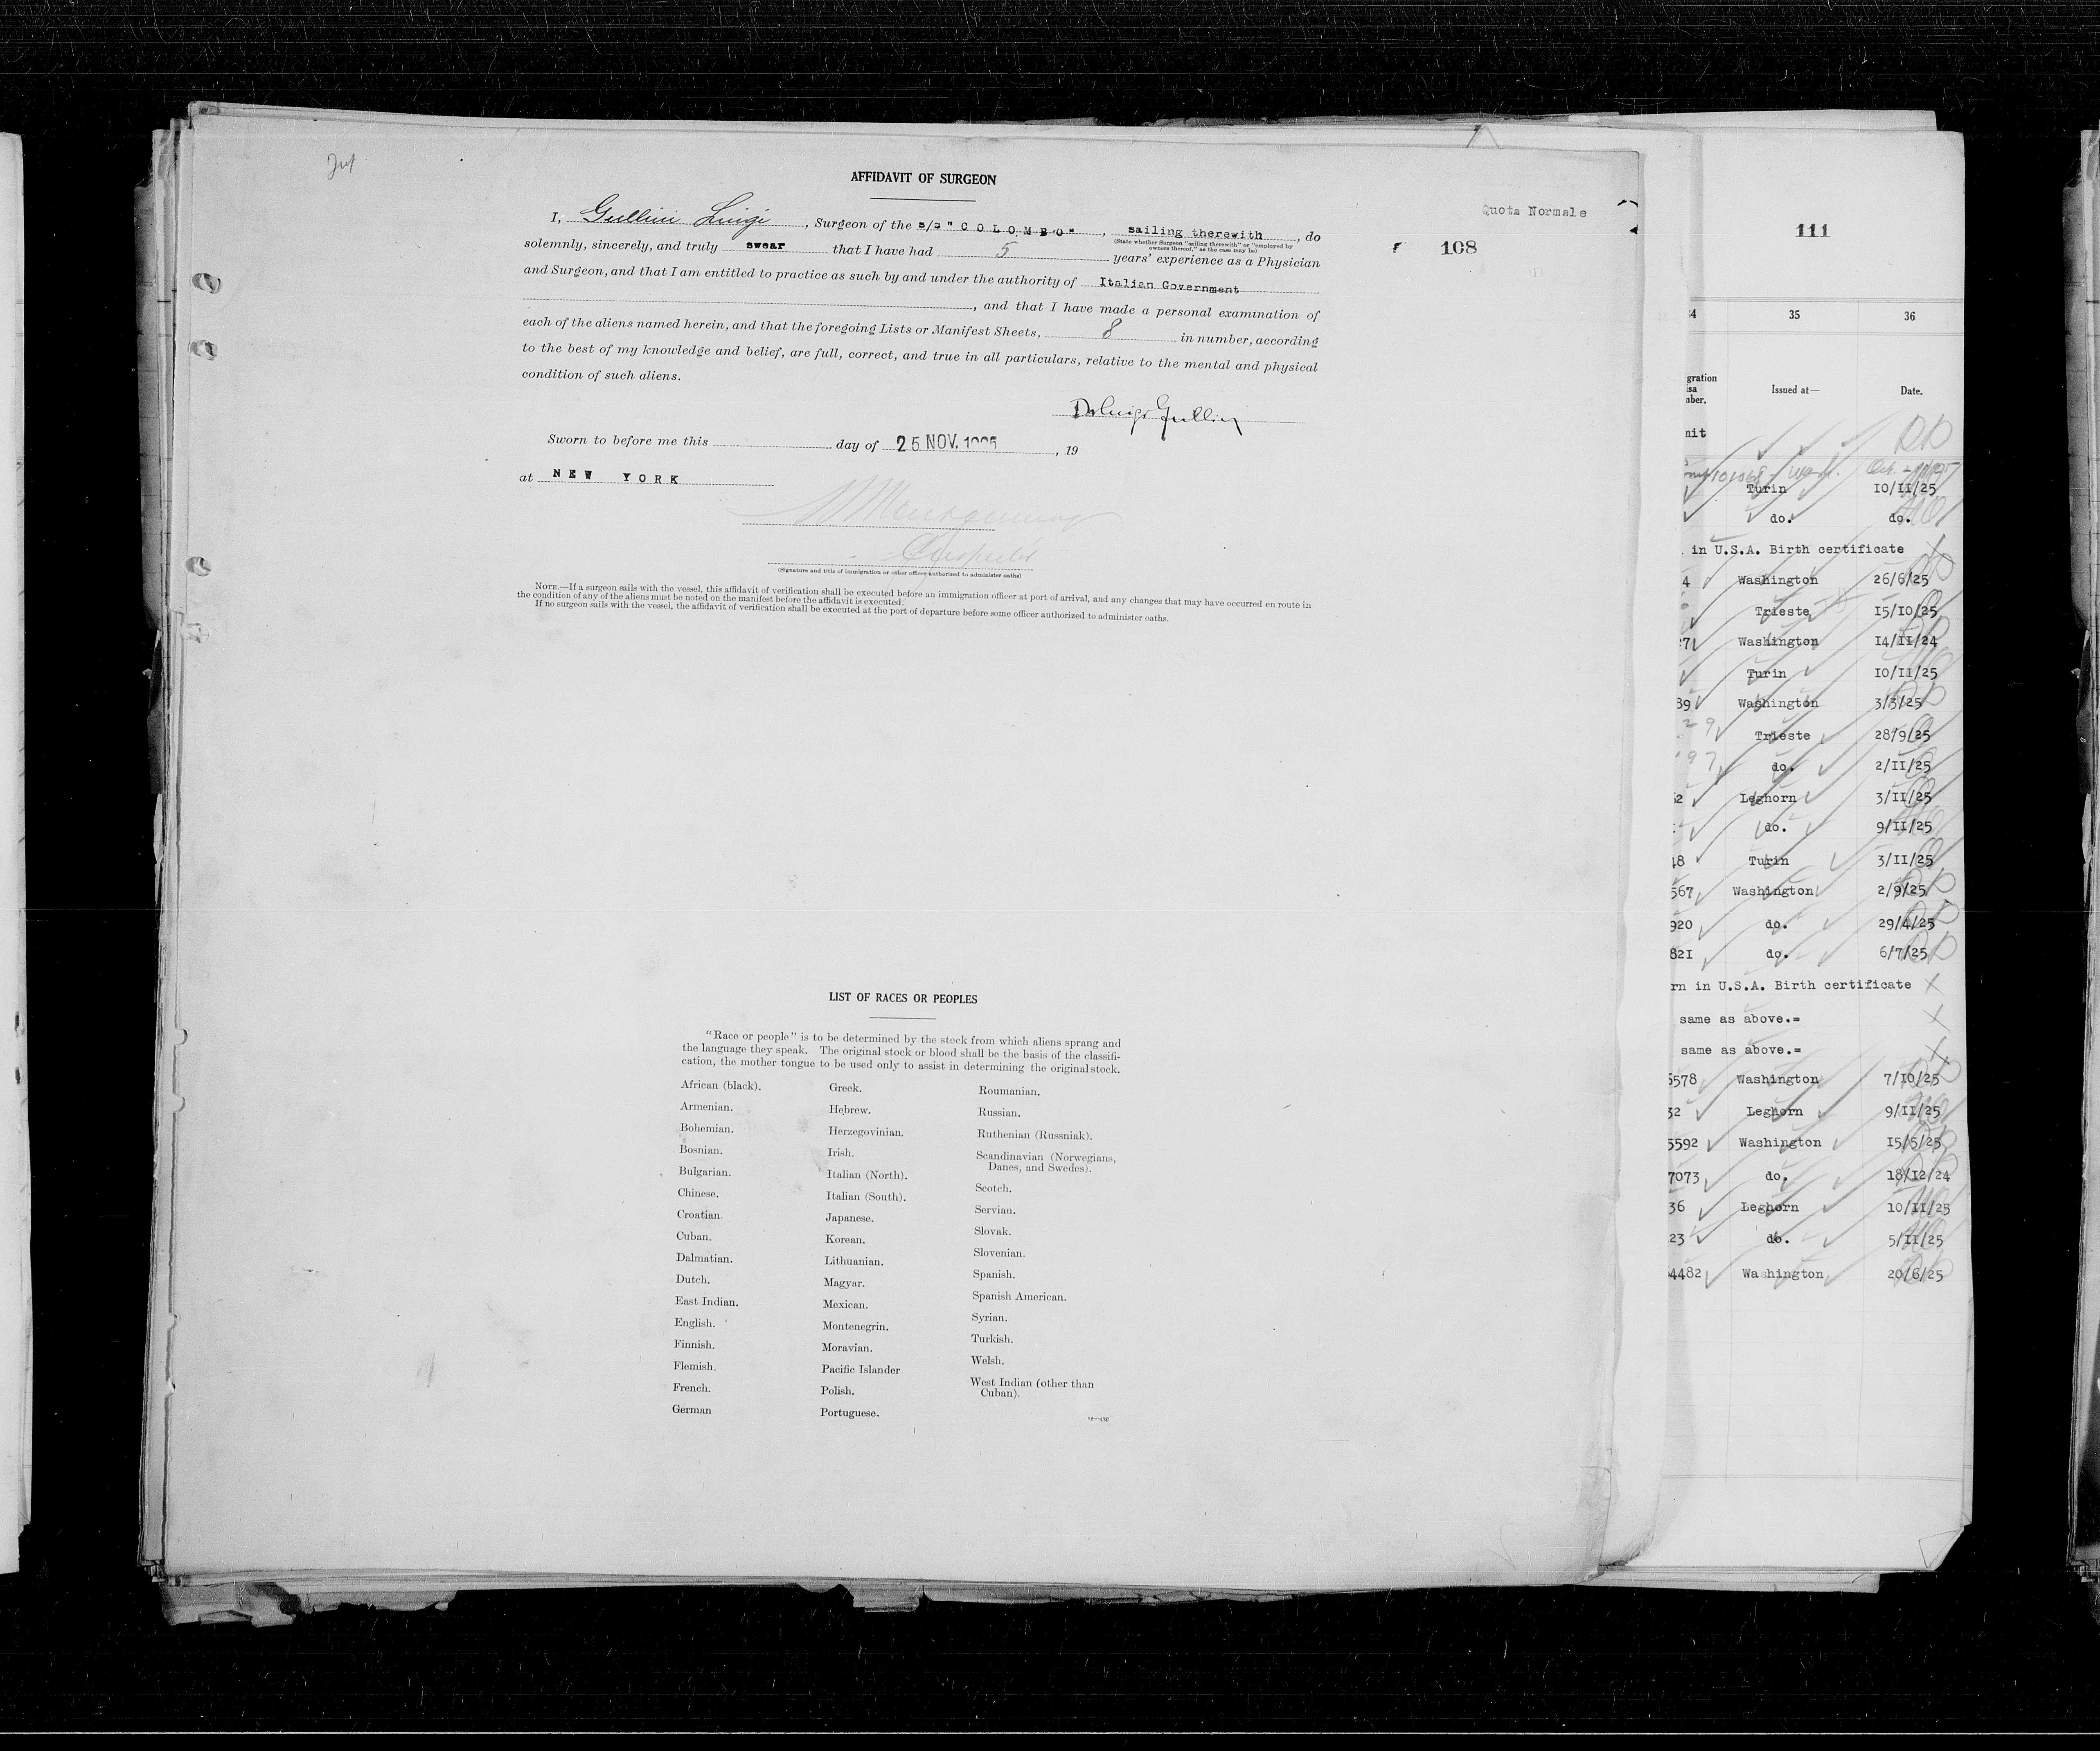 AFFIDAVIT OF SURGEON
Quota Normale
108
I, Gullini Luigi, Surgeon of the s/s "COLOMBO", sailing therewith, do
(State whether Surgeon "sailing therewith" or "employed by owners thereof," as the case may be)
solemnly, sincerely, and truly swear that I have had 5 years' experience as a Physician
and Surgeon, and that I am entitled to practice as such by and under the authority of Italian Government
, and that I have made a personal examination of
each of the aliens named herein, and that the foregoing Lists or Manifest Sheets, 8 in number, according
to the best of my knowledge and belief, are full, correct, and true in all particulars, relative to the mental and physical
condition of such aliens.
Dr Luigi Gullini
Sworn to before me this day of 25 NOV. , 19
at NEW YORK
(Signature and title of immigration or other officer authorized to administer oaths)
NOTE.—If a surgeon sails with the vessel, this affidavit of verification shall be executed before an immigration officer at port of arrival, and any changes that may have occurred en route in
the condition of any of the aliens must be noted on the manifest before the affidavit is executed.
If no surgeon sails with the vessel, the affidavit of verification shall be executed at the port of departure before some officer authorized to administer oaths.
LIST OF RACES OR PEOPLES
"Race or people" is to be determined by the stock from which aliens sprang and
the language they speak. The original stock or blood shall be the basis of the classifi-
cation, the mother tongue to be used only to assist in determining the original stock.
African (black).
Armenian.
Bohemian.
Bosnian.
Bulgarian.
Chinese.
Croatian.
Cuban.
Dalmatian.
Dutch.
East Indian.
English.
Finnish.
Flemish.
French.
German
Greek.
Hebrew.
Herzegovinian.
Irish.
Italian (North).
Italian (South).
Japanese.
Korean.
Lithuanian.
Magyar.
Mexican.
Montenegrin.
Moravian.
Pacific Islander
Polish.
Portuguese.
Roumanian.
Russian.
Ruthenian (Russniak).
Scandinavian (Norwegians,
Danes, and Swedes).
Scotch.
Servian.
Slovak.
Slovenian.
Spanish.
Spanish American.
Syrian.
Turkish.
Welsh.
West Indian (other than
Cuban).
111
35 36
Issued at— Date.
Turin 10/II/25
do. do.
in U.S.A. Birth certificate
4 Washington 26/6/25
Trieste 15/10/25
71 Washington 14/II/24
Turin 10/II/25
89 Washington 3/3/25
Trieste 28/9/25
97 do. 2/II/25
Leghorn 3/II/25
do. 9/II/25
48 Turin 3/II/25
567 Washington 2/9/25
920 do. 29/4/25
821 do. 6/7/25
rn in U.S.A. Birth certificate
same as above.=
same as above.=
5578 Washington 7/10/25
32 Leghorn 9/II/25
5592 Washington 15/5/25
7073 do. 18/12/24
36 Leghorn 10/II/25
23 do. 5/II/25
4482 Washington 20/6/25